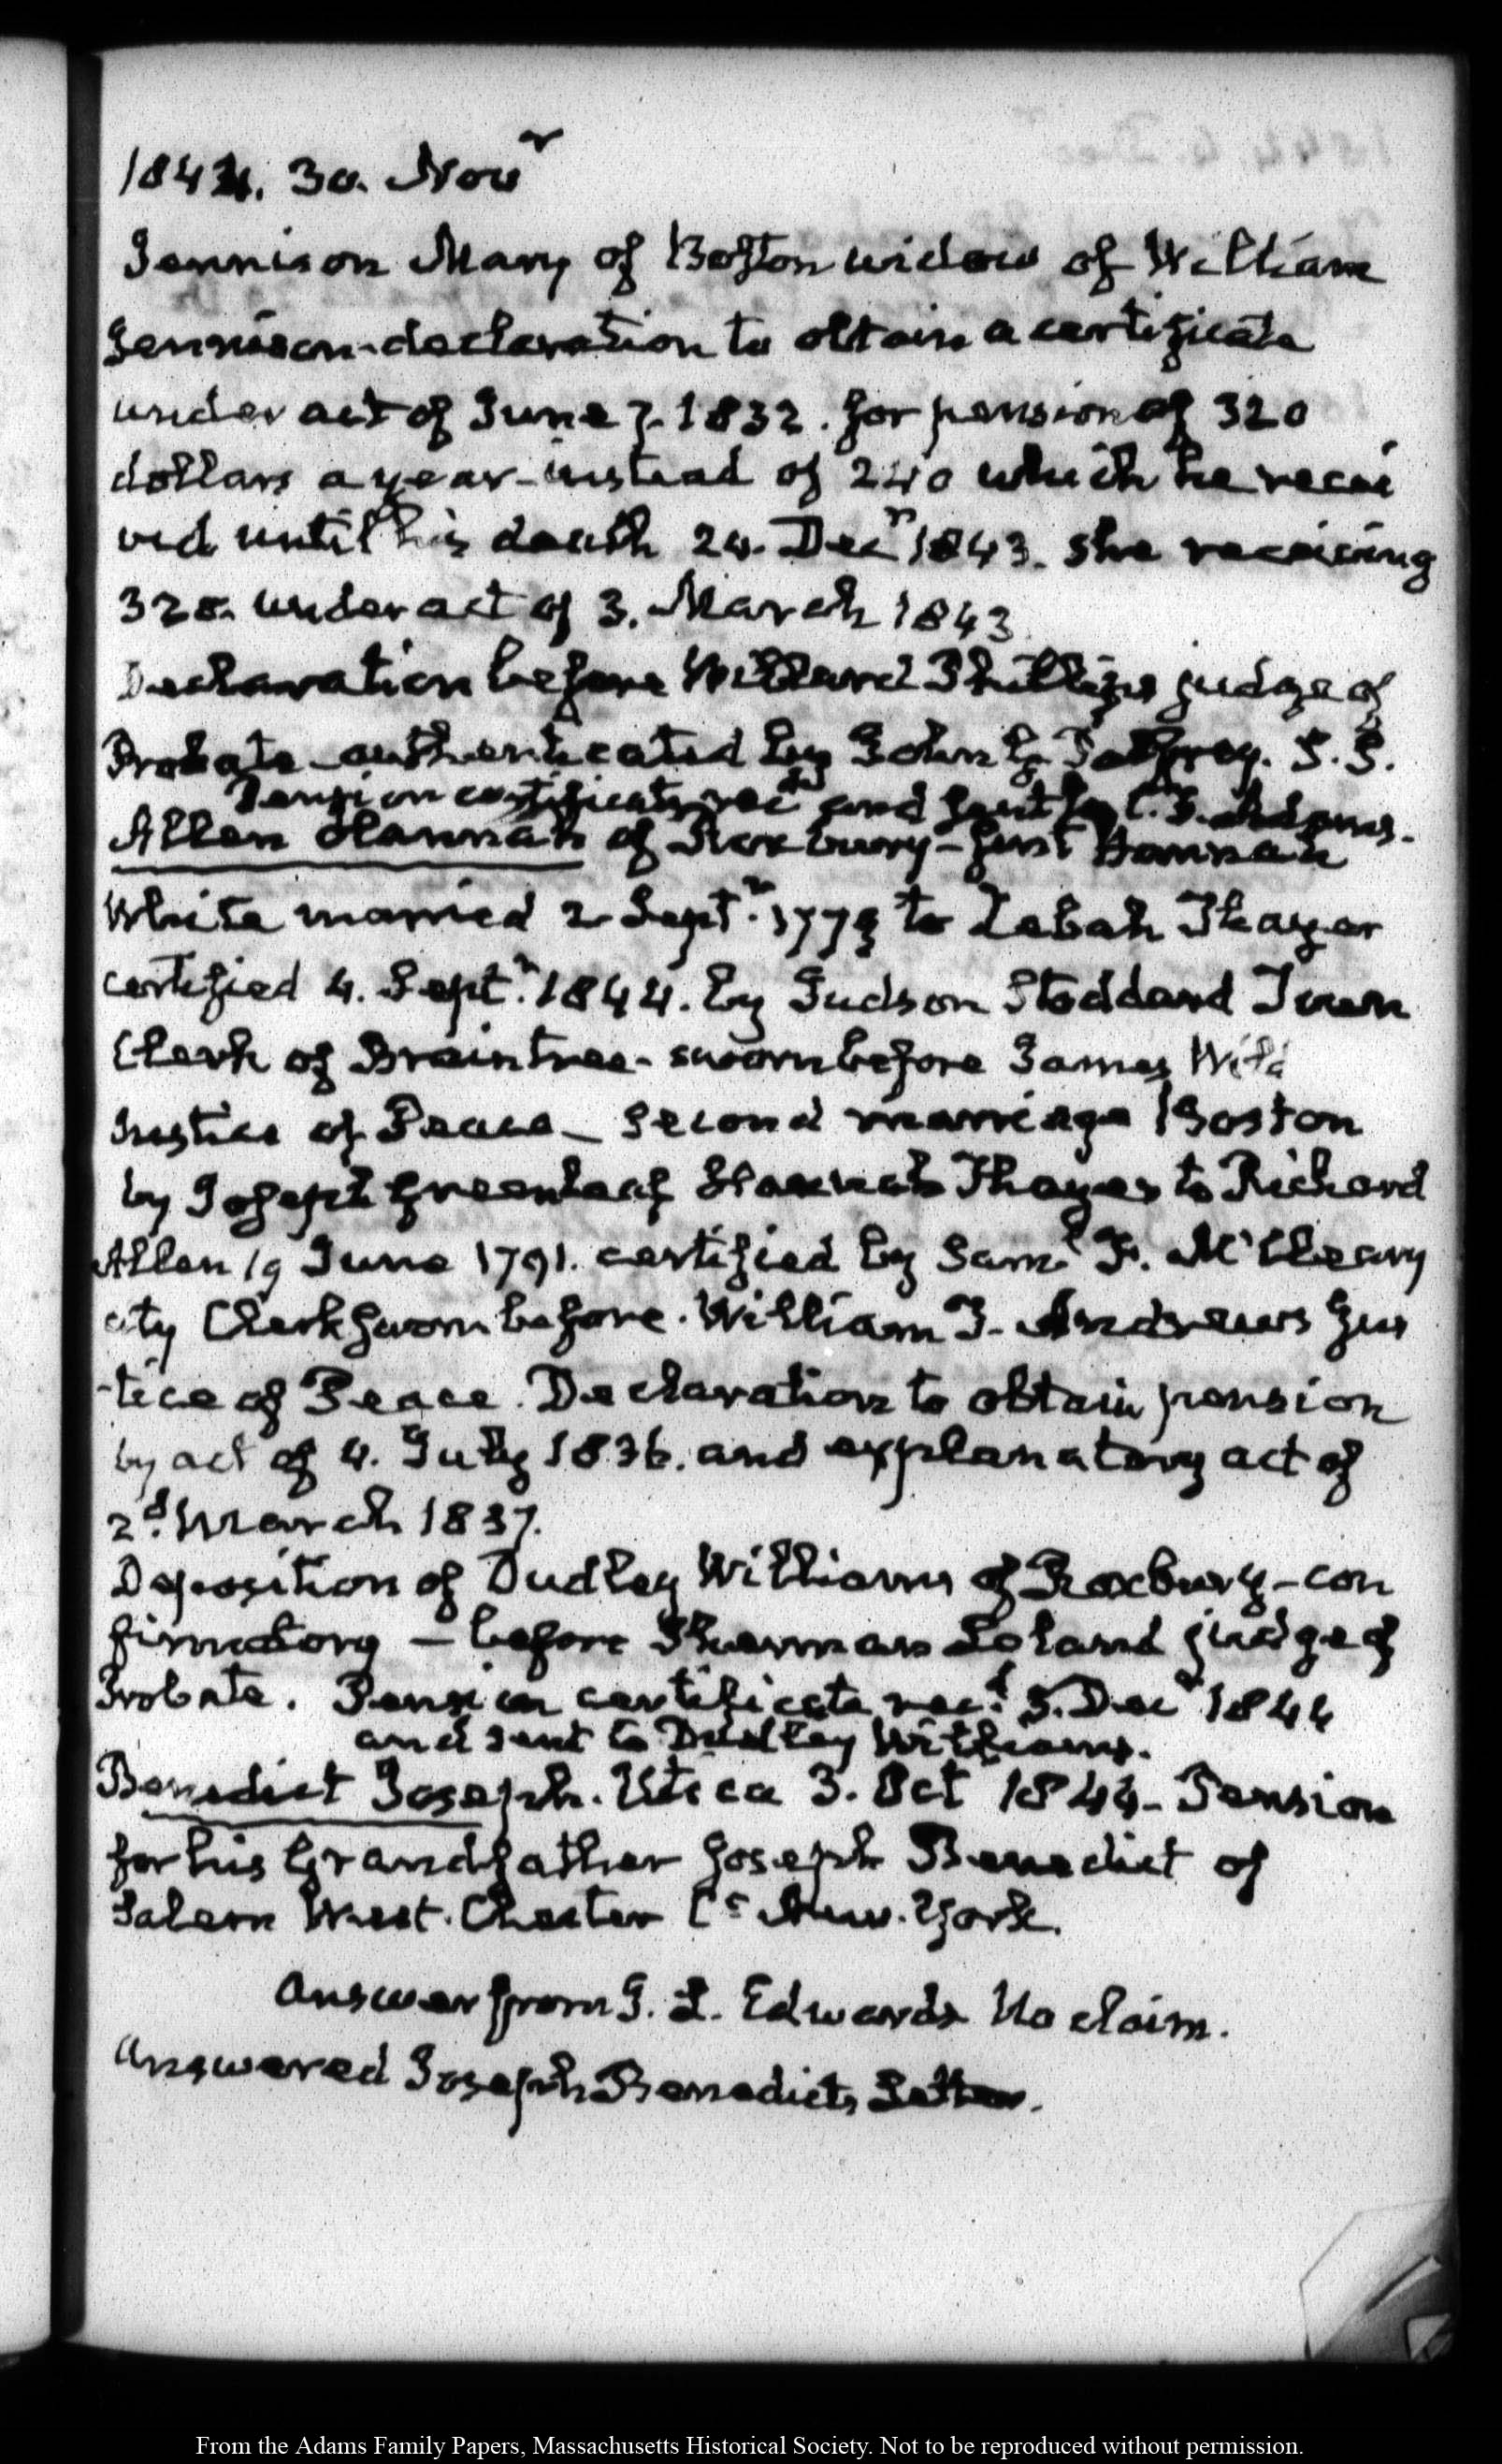 1844. 30. Novr
Jennison Mary of Boston widow of William
Jennison declaration to obtain a certificate
under act of June 7. 1832. for pension of 320
dollars a year instead of 240 which he recei
ved until his death 24. Decr 1843. she receiving
320. under act of 3. March 1843
Declaration before Willard Phillips judge of
Probate authenticated by John G. Palfrey. S. S.
Pension certificate recd and sent to C. F. Adams.
Allen Hannah of Roxbury - first Hannah
White married 2 Septr. 1779 to Zebah Thayer
certified 4. Septr. 1844. by Judson Stoddard Town
Clerk of Braintree - sworn before James
Justice of Peace - Second marriage Boston
by Joseph Greenleaf Hannah Thayer to Richard
Allen 19 June 1791. certified by Saml F. McCleary
city Clerk sworn before. William T. Andrews Jus
-tice of Peace. Declaration to obtain pension
by act of 4. July 1836. and explanatory act of
2d. March 1837.
Deposition of Dudley Williams of Roxbury - con
firmatory - before Sherman Leland judge of
Probate. Pension certificate recd. 5. Decr 1844
and sent to Dudley Williams.
Benedict Joseph. Utica 3. Oct 1844 - Pension
for his Grandfather Joseph Benedict of
Salem West. Chester Co New. York.
Answer from J. L. Edwards No claim.
Answered Joseph Benedicts Letter.
From the Adams Family Papers, Massachusetts Historical Society. Not to be reproduced without permission.